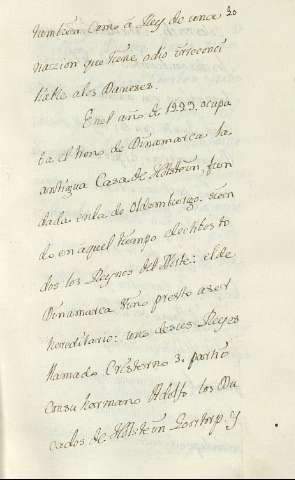 30
nombra como á Rey de una
nazzion que tiene odio irreconci
liable a los Daneses.
En el año de 1223. ocupa
ba el trono de Dinamarca la
antigua Casa de Holstein, fun
dada en la de Oldemburgo, sien
do en aquel tiempo electibos to
dos los Reynos del Norte: el de
Dinamarca vino presto a ser
hereditario: uno de sus Reyes
llamado Cristerno 3. partió
con su hermano Adolfo los Du
cados de Holstein Gortorp. y